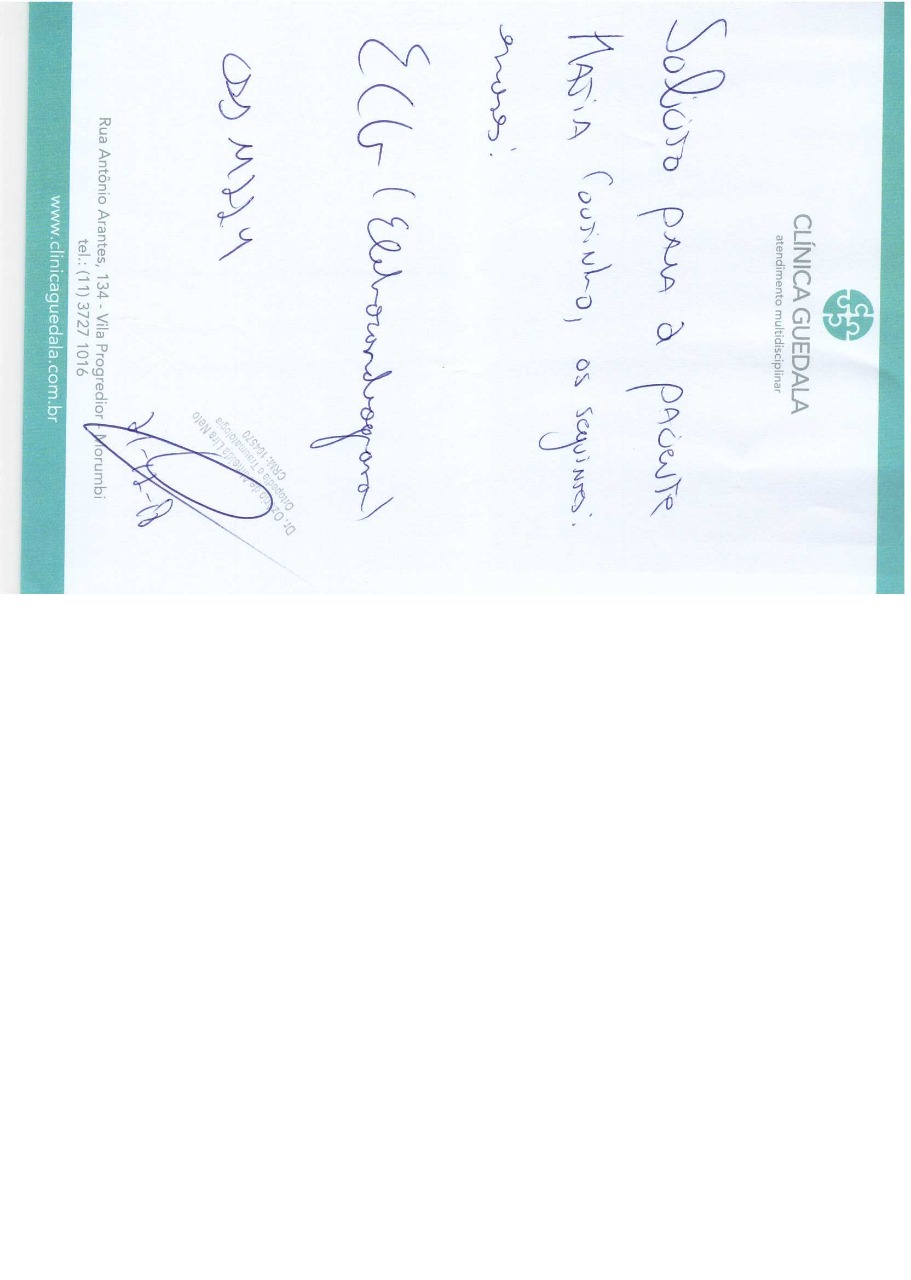 CLÍNICA GUEDALA
atendimento multidisciplinar
Solicito para a paciente
Maria Coutinho, os seguintes
exames:
ECG (Eletrocardiograma)
CRM: 104570
Ortopedia e Traumatologia
Rua Antônio Arantes, 134 - Vila Progredior - Morumbi
tel.: (11) 3727 1016
www.clinicaguedala.com.br